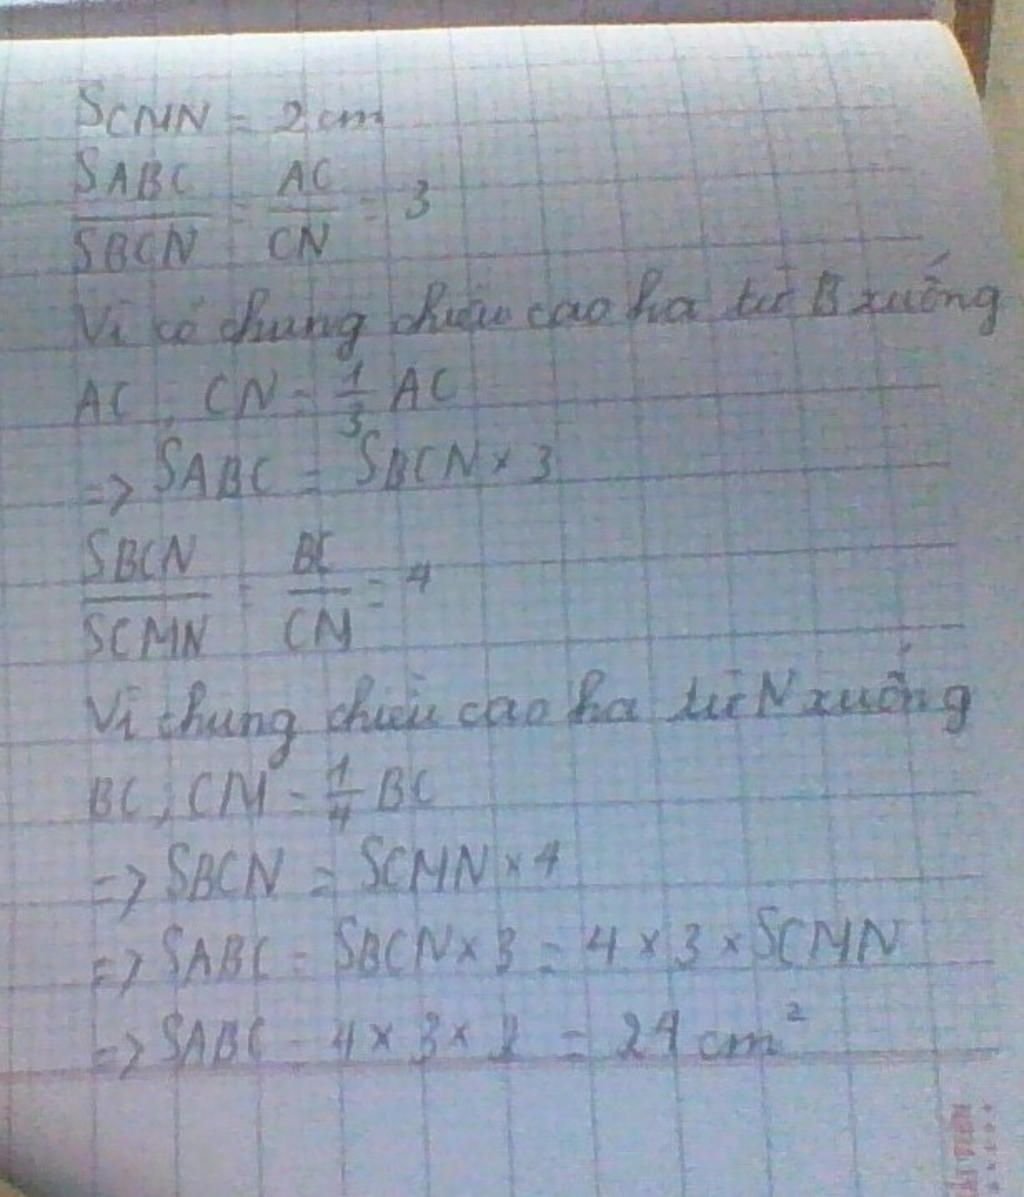 SCMN = 2 cm
SABC / SBCN = AC / CN = 3
Vì có chung chiều cao hạ từ B xuống
AC, CN = 1/3 AC
=> SABC = SBCN × 3
SBCN / SCMN = BC / CM = 4
Vì chung chiều cao hạ từ N xuống
BC, CM = 1/4 BC
=> SBCN = SCMN × 4
=> SABC = SBCN × 3 = 4 × 3 × SCMN
=> SABC = 4 × 3 × 2 = 24 cm²